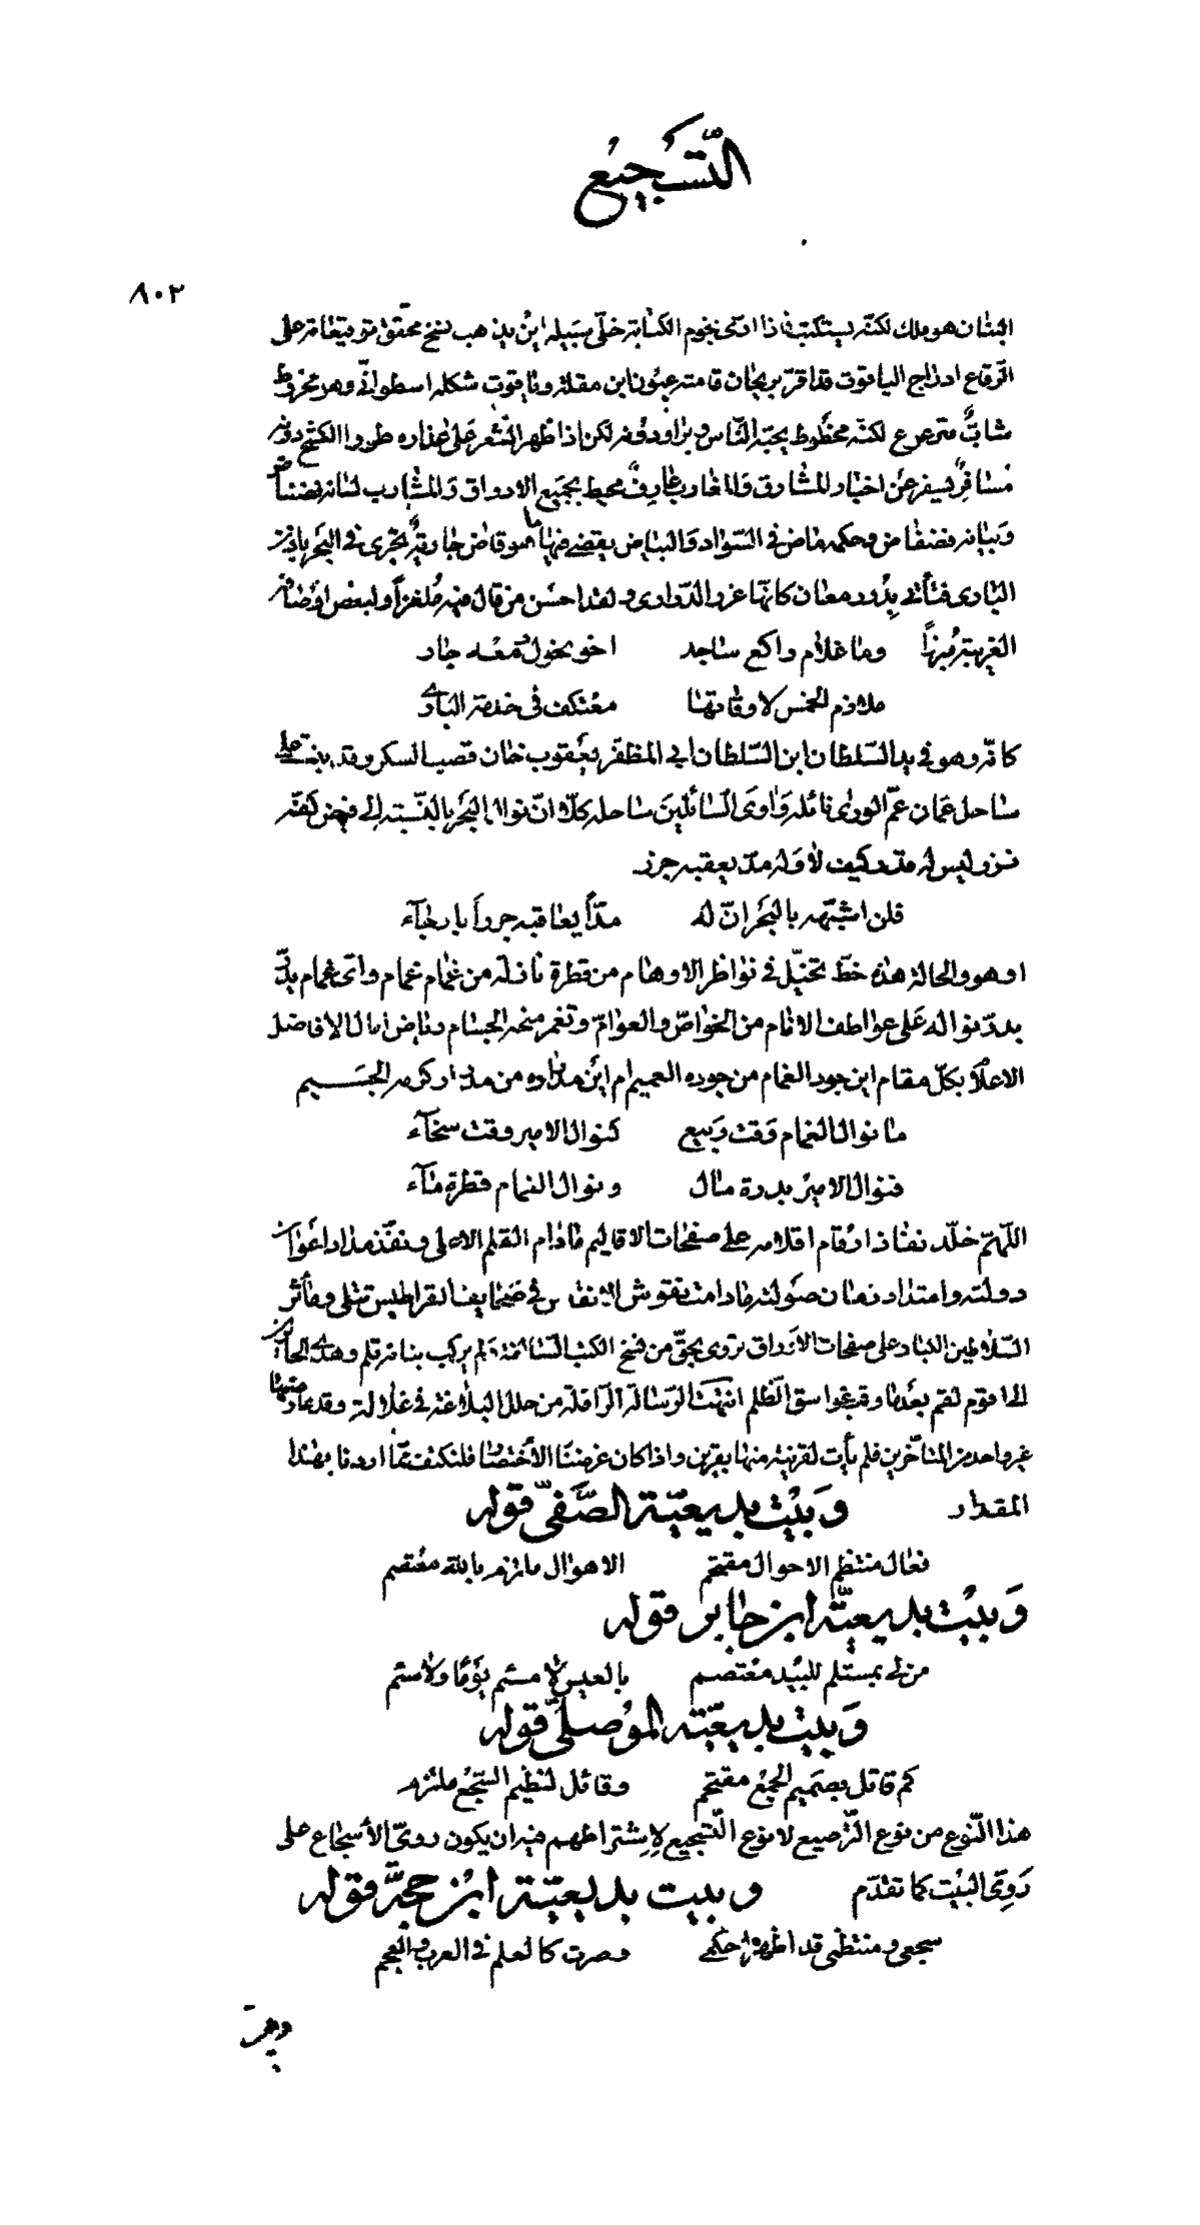 التسجيع
٨٠٢
البنان هو ملك لكنه يستكتب فاذا ادعى نجوم الكتابة خلى سبيله اين يذهب نسخ محقق توقيعاته على
الرقاع ادراج الياقوت قد اقر بريحان قامته عيون ابن مقلة وياقوت شكله اسطوانى وهو مخروط
شاب مترعرع لكنه محظوظ يحبه الناس ويراودونه لكن اذا ظهر الشعر على عذاره طووا الكشح دونه
مسافر يسفر عن اخبار المشارق والمغارب عارف محيط بجميع الاذواق والمشارب لسانه نضناض
وبيانه فضفاض وحكمه ماض فى السواد والبياض يقضى فيهما هو قاض جارية تجرى فى البحر باذن
البارى فتأتى بدرر معان كانها غرر الدرارى ولقد احسن من قال فيه ملغزا ولبعض اوصافه
الغريبة مبرزا وما غلام راكع ساجد اخو نحول دمعه جار
ملازم الخمس لاوقاتها معتكف فى خدمة البارى
كانه وهو فى يد السلطان ابن السلطان ابى المظفر يعقوب خان قصب السكر وقد نبت على
ساحل عمان عم الورى نائله واوى السائلين ساحله كلا ان نوال البحر بالنسبة الى فيض كفه
نزر ليس له مد وكيف لا وله مد يعقبه جزر
فلن اشبهه بالبحر ان له مدا يعاقبه جزر بارجاء
او هو والحالة هذه خط تخيل فى نواظر الاوهام من قطرة نازلة من غمام غمام واى غمام يدر
بدر نواله على عواطف الانام من الخواص والعوام وتغمر منحه الجسام رياض امال الافاضل
الاعلام بكل مقام اين جود الغمام من جوده العميم ام اين مدراره من مدار كرمه الجسيم
ما نوال الغمام وقت ربيع كنوال الامير وقت سخاء
فنوال الامير بدرة مال ونوال الغمام قطرة ماء
اللهم خلد نفاذ ارقام اقلامه على صفحات الاقاليم مادام القلم الاعلى ونفذ مداد اعوان
دولته وامتداد زمان صولته مادامت نقوش الانفاس فى صحايف القراطيس تتلى ومآثر
السلاطين الكبار على صفحات الاوراق تروى بحق من نسخ الكتب السالفة ولم يركب بنانه قلم وهدى الحائرين
الى اقوم لقم بعدما وقبوا غواسق الظلم انتهت الرسالة الرافلة من حلل البلاغة فى غلالة وقد عارضها
غير واحد من المتاخرين فلم يأت لقرينة منها بقرين واذا كان غرضنا الاختصار فلنكتف عما اردنا بهذا
المقدار وبيت بديعية الصفى قوله
فعال منتظم الاحوال مقتحم الاهوال ملتزم بالله معتصم
وبيت بديعية ابن جابر قوله
من لى بمستلم للبيد معتصم بالعيس لا مسئم يوما ولا سئم
وبيت بديعية الموصلى قوله
كم قاتل بصميم الجمع مقتحم وقائل لنظيم السجع ملتزم
هذا النوع من نوع الترصيع لا نوع التسجيع لاشتراطهم فيه ان يكون روى الأسجاع على
روى البيت كما تقدم وبيت بديعية ابن حجة قوله
سجعى ومنتظمى قد اظهرا حكمى وصرت كالعلم فى العرب والعجم